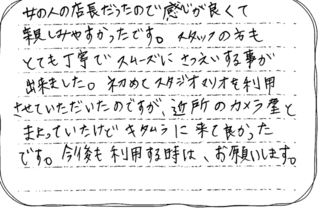 女の人の店長だったので感じが良くて
親しみやすかったです。スタッフの方も
とても丁寧でスムーズにさつえいする事が
出来ました。初めてスタジオマリオを利用
させていただいたのですが、近所のカメラ屋と
まよっていたけどキタムラに来て良かった
です。今後も利用する時は、お願いします。